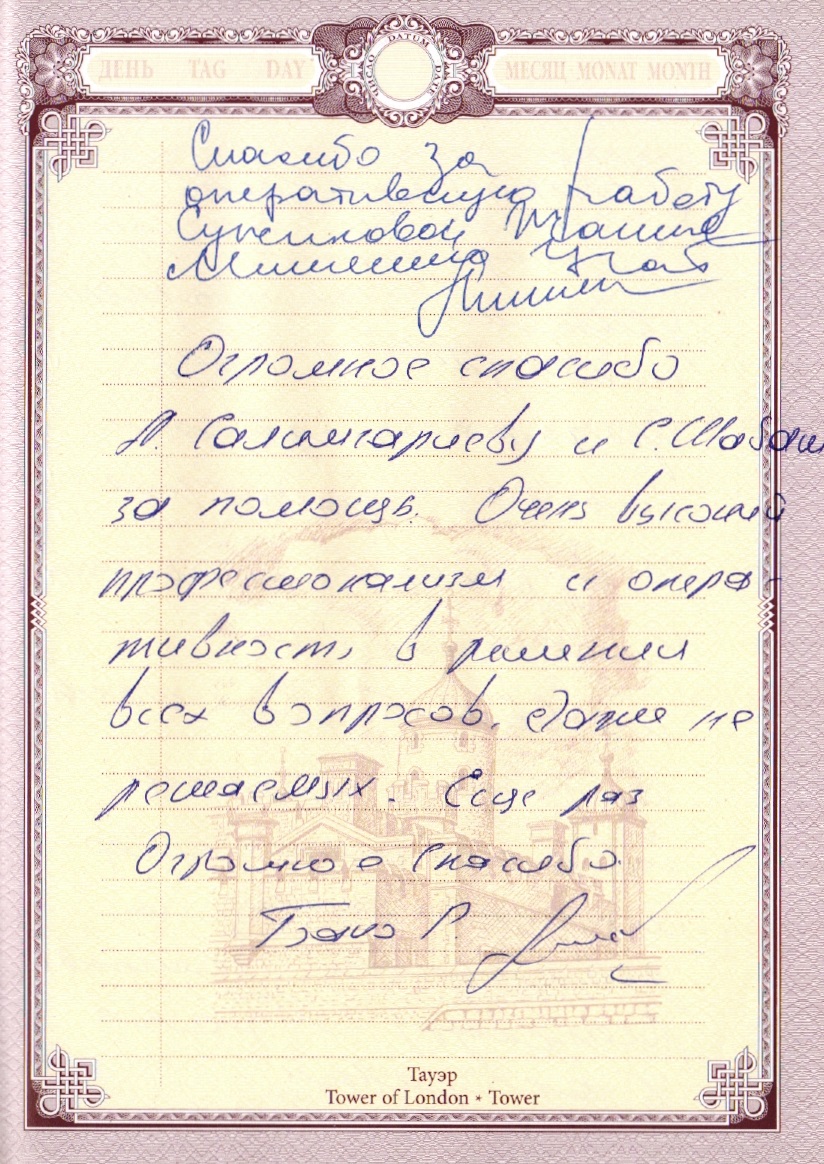 ДЕНЬ TAG DAY
DATUM
МЕСЯЦ MONAT MONTH
Спасибо за
оперативную работу
Огромное спасибо
А. Салимгариеву и С. Шабаш
за помощь. Очень высокий
профессионализм и опера-
тивность в решении
всех вопросов, даже не
решаемых. Еще раз
Огромное Спасибо.
Тауэр
Tower of London * Tower